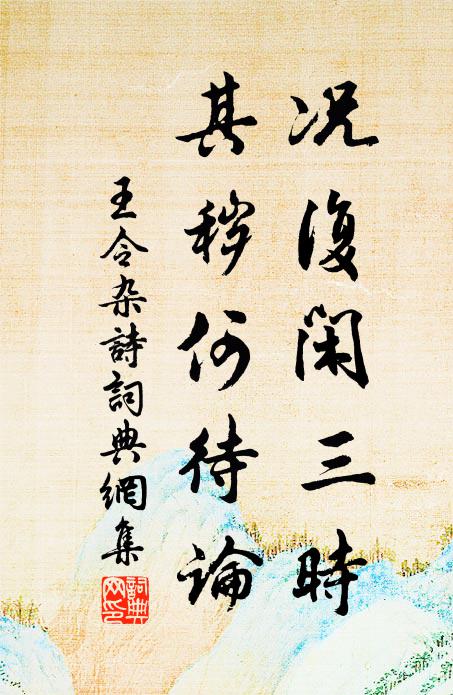 况復閑三時
其穢何待論
王令杂詩詞典網集
詞典網印